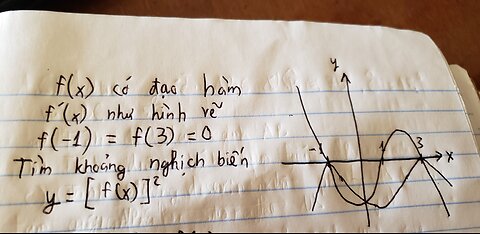 f(x) có đạo hàm
f'(x) như hình vẽ
f(-1) = f(3) = 0
Tìm khoảng nghịch biến
y = [f(x)]²
y
-1
1
3
x